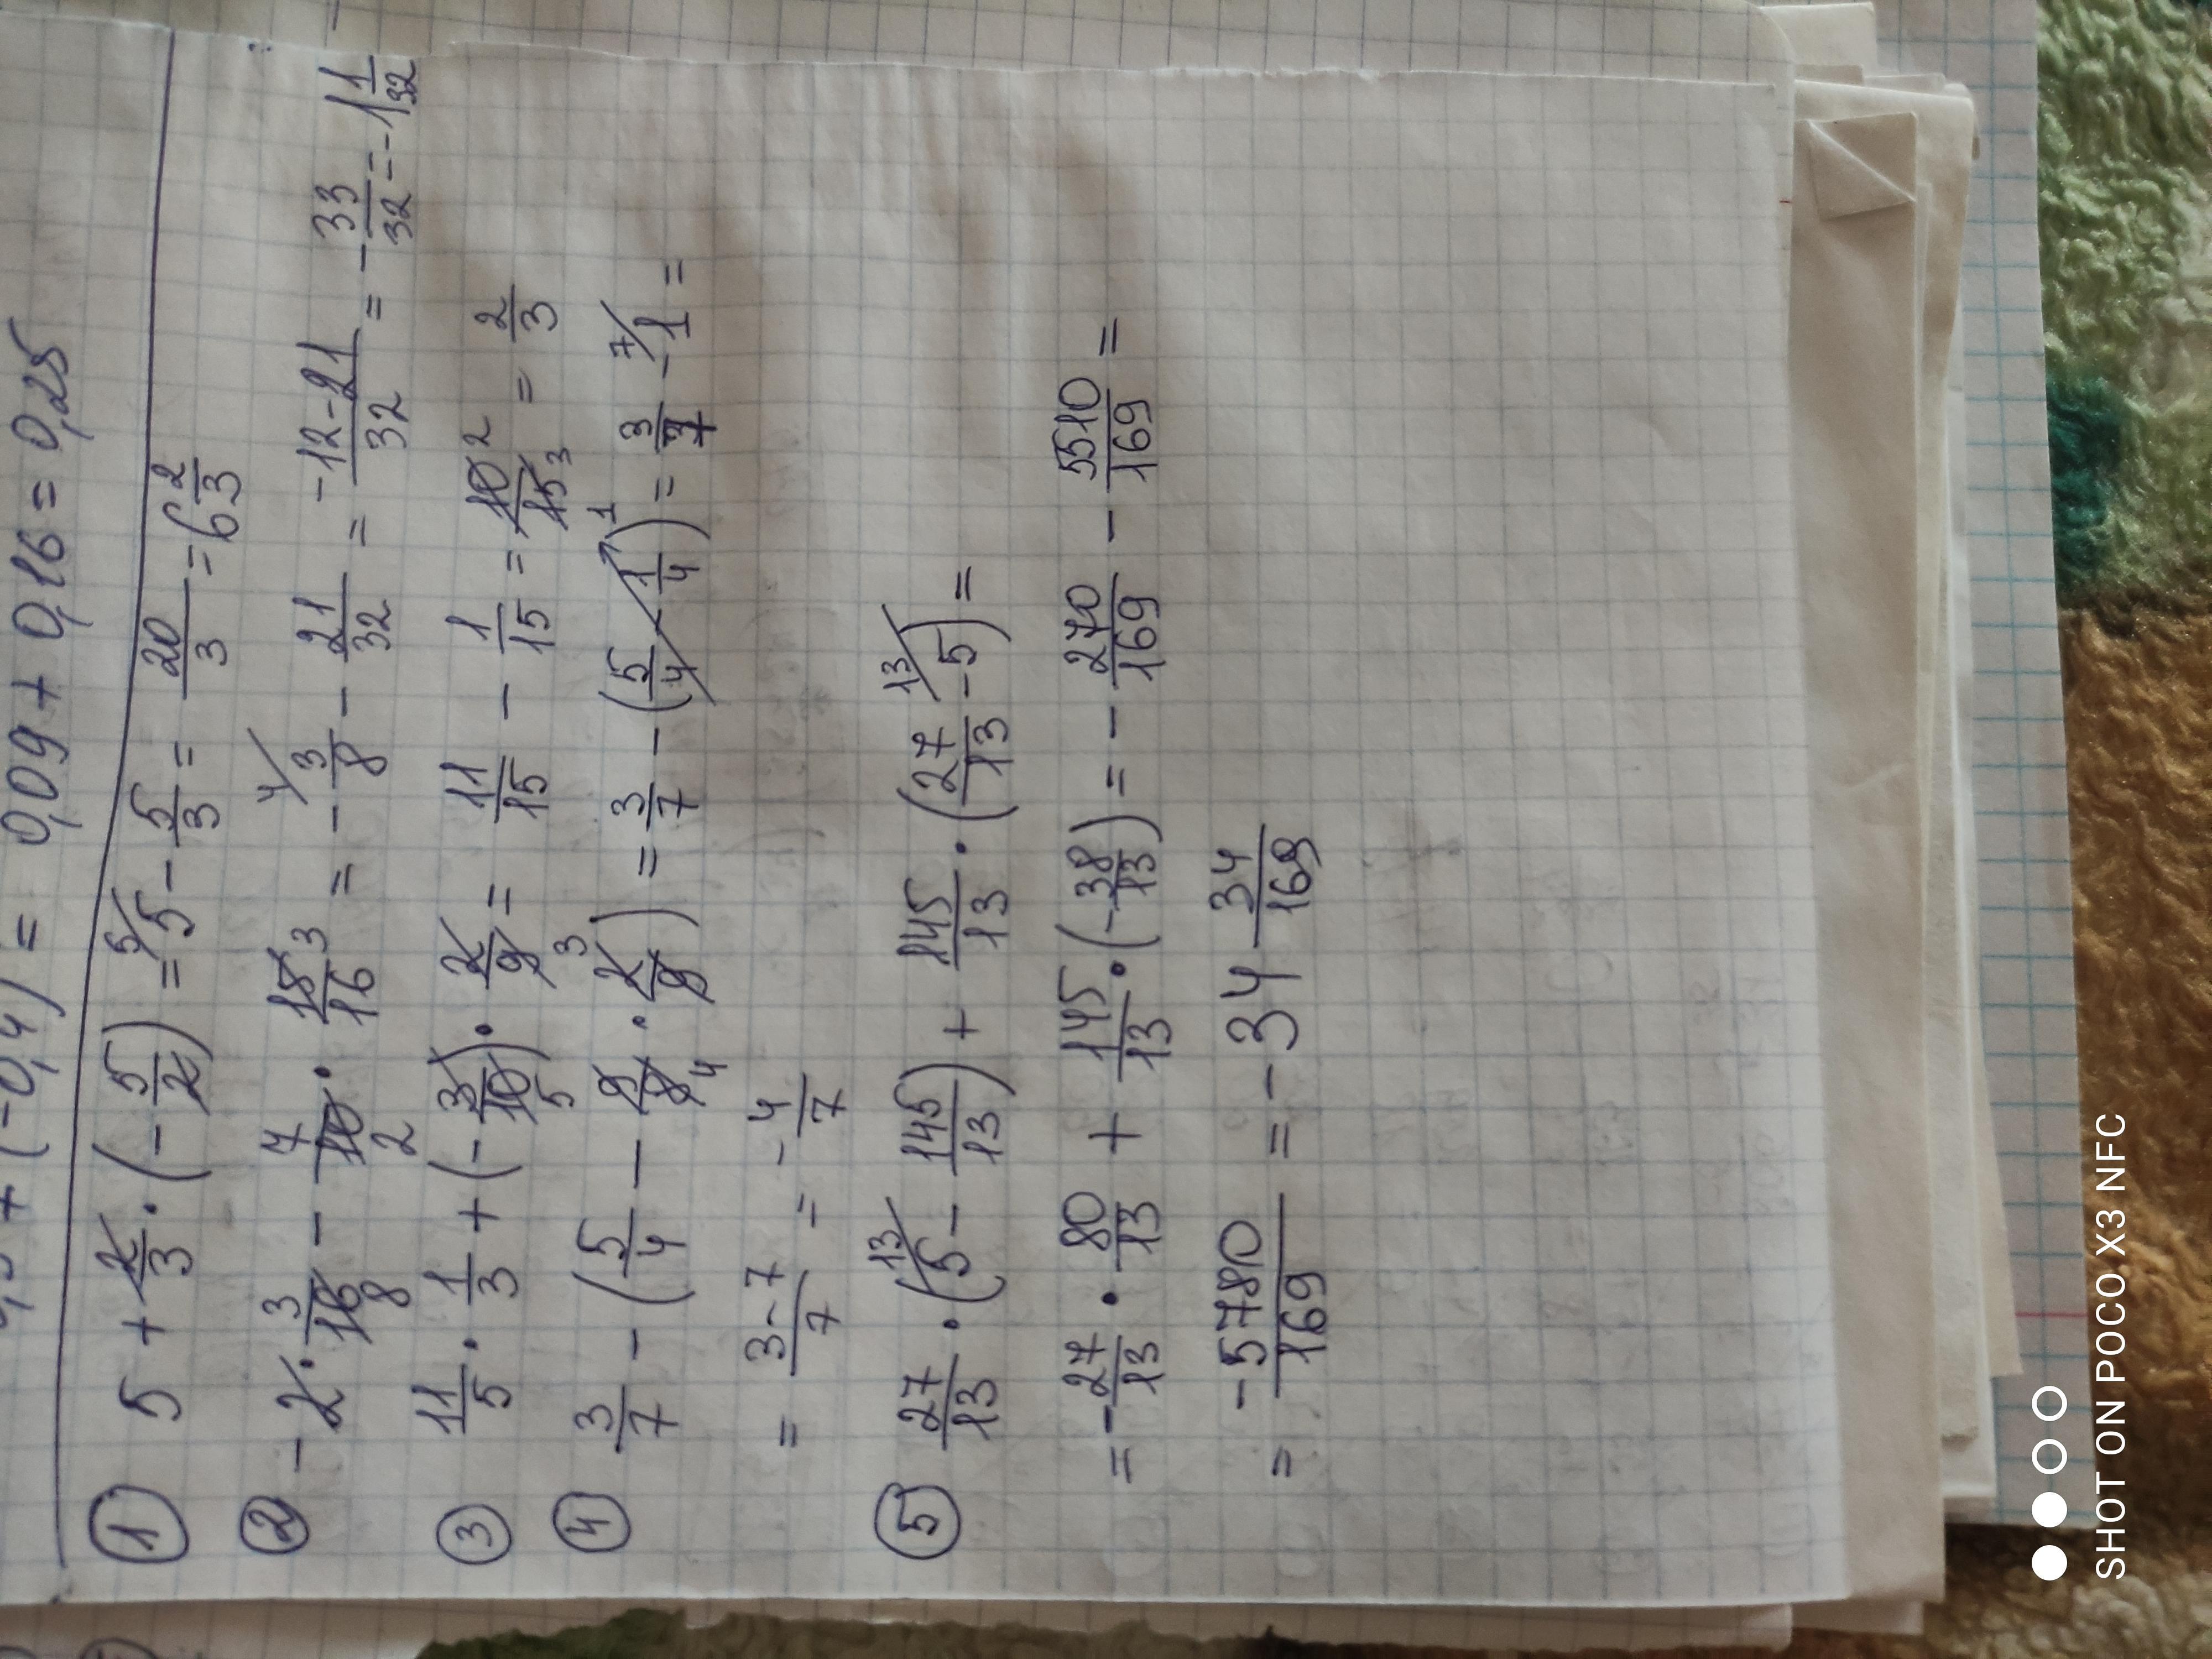 0,09 + 0,16 = 0,25
① 5 + 2/3 · (- 5/2) = 5 - 5/3 = 20/3 = 6 2/3
② - 2 · 3/16 - 7/10 · 15/16 = - 3/8 - 21/32 = -12-21/32 = - 33/32 = - 1 1/32
③ 11/5 · 1/3 + (- 3/10) · 2/9 = 11/15 - 1/15 = 10/15 = 2/3
④ 3/7 - (5/4 - 9/8 · 2/9) = 3/7 - (5/4 - 1/4) = 3/7 - 1 =
= 3-7/7 = - 4/7
⑤ 27/13 · (5 - 145/13) + 145/13 · (27/13 - 5) =
= - 27/13 · 80/13 + 145/13 · (- 38/13) = - 270/169 - 5510/169 =
= -5780/169 = - 34 34/169
SHOT ON POCO X3 NFC